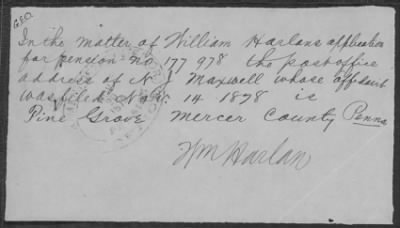 G.E.O.
In the matter of William Harlans application
for pension no. 177 978 the post office
address of N. J. Maxwell whose affidavit
was filed Nov. 14 1878 is
Pine Grove Mercer County Penna
Wm Harlan